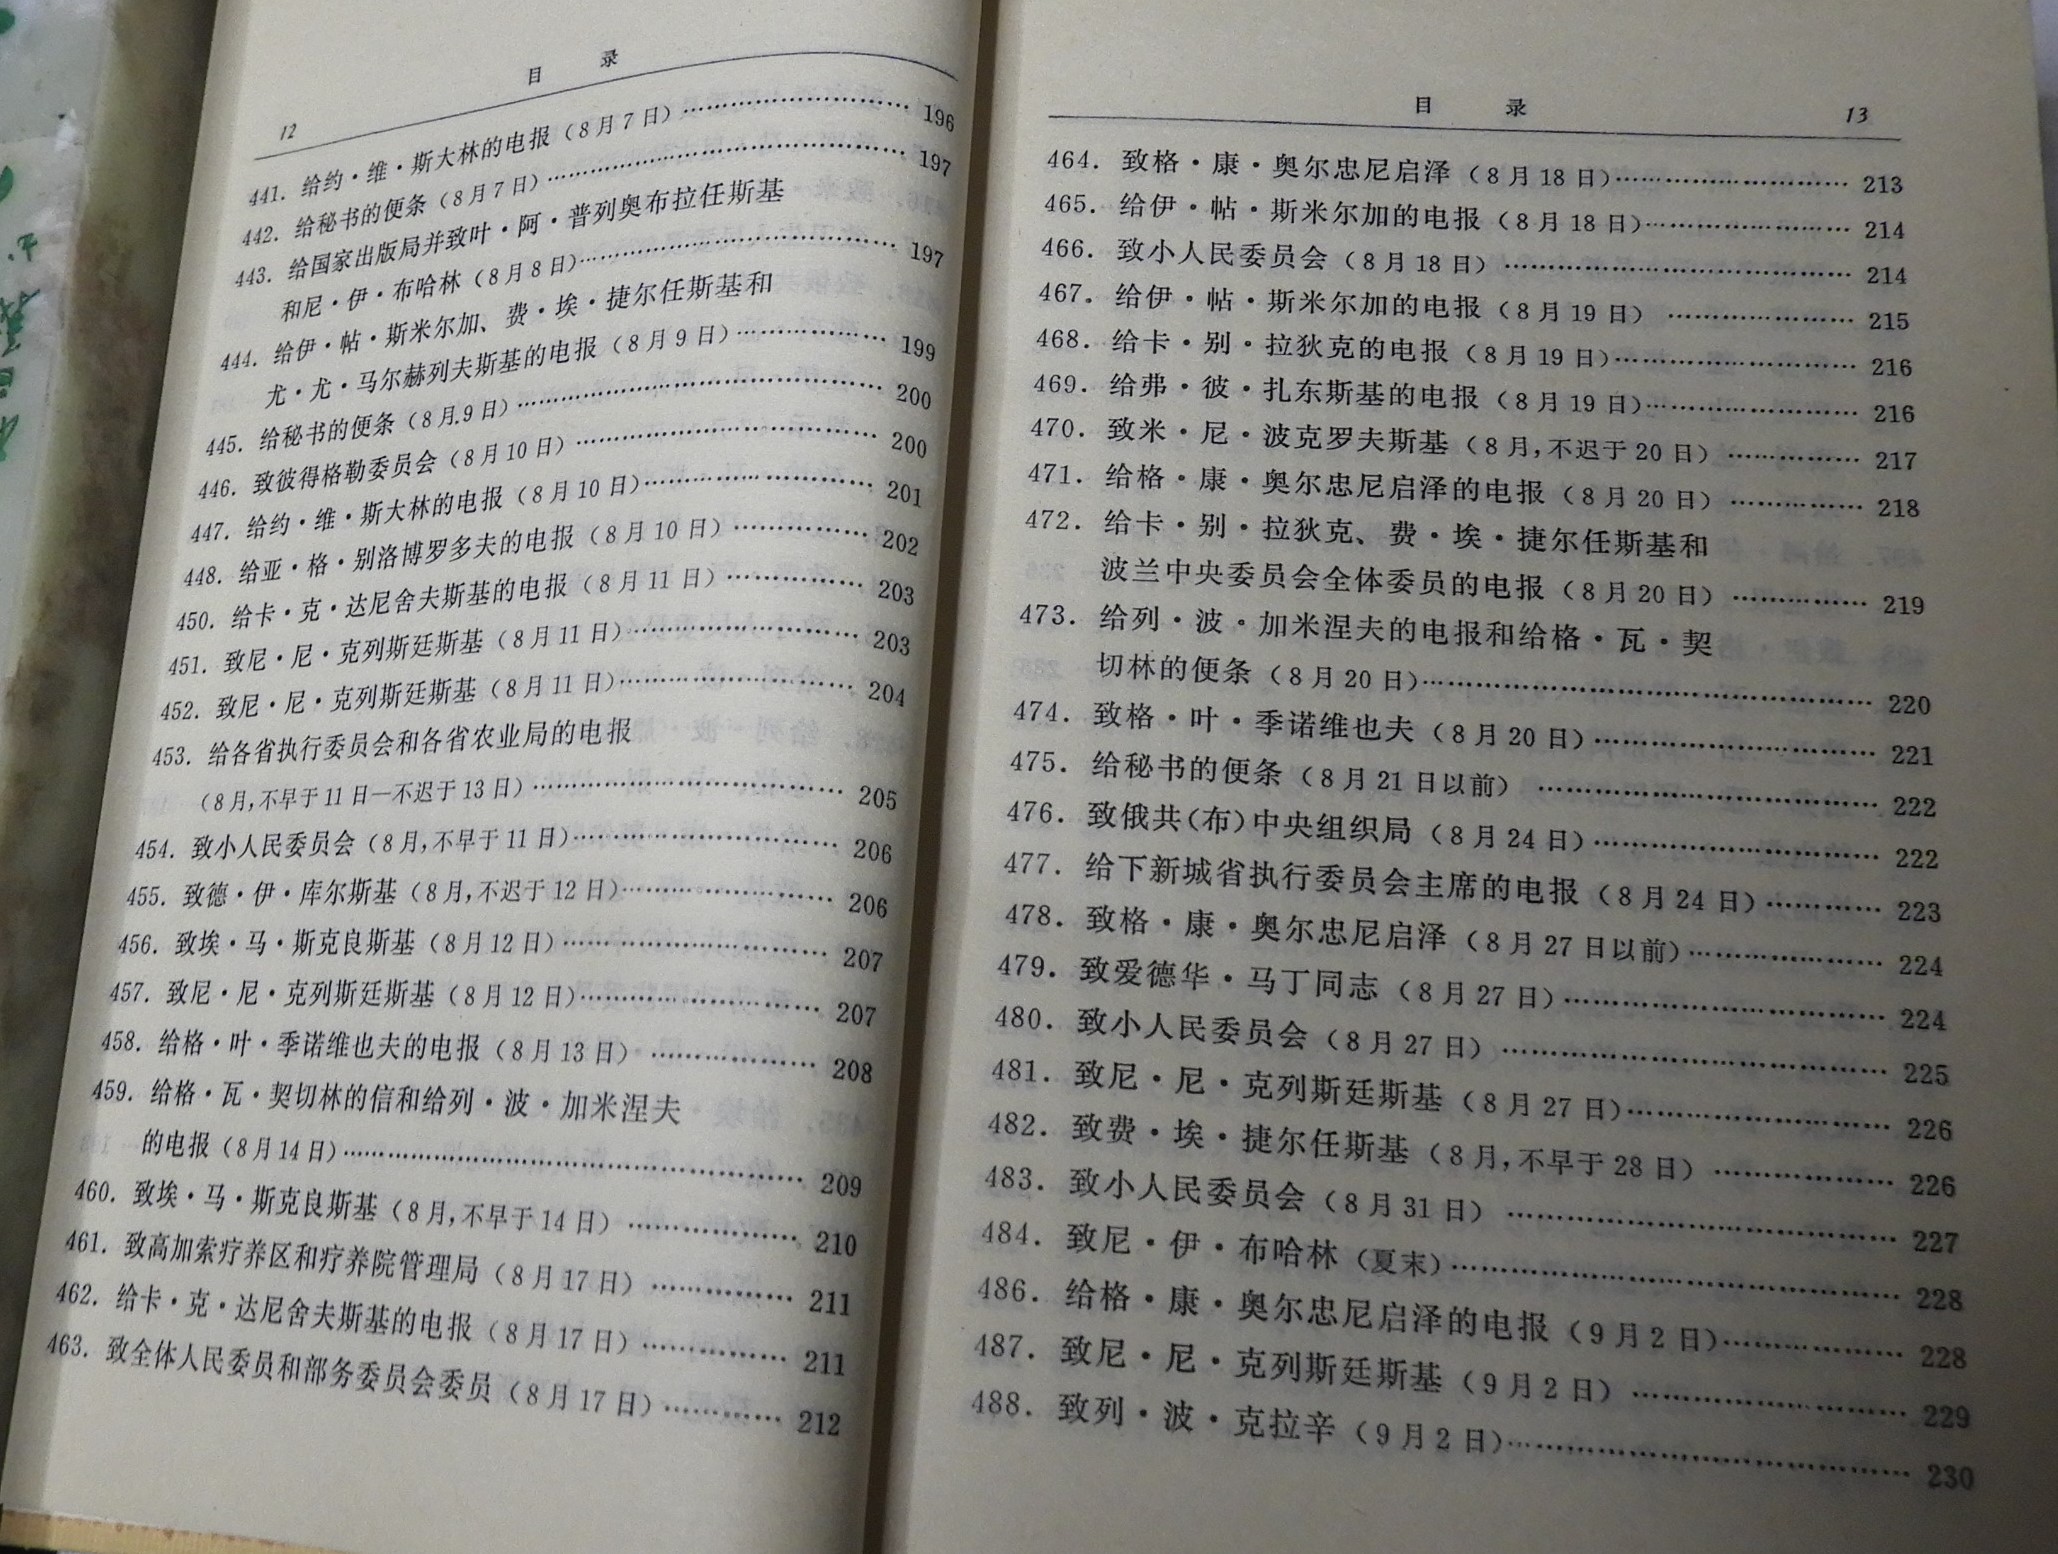 12
目 录
441. 给约·维·斯大林的电报（8月7日）…………………… 196
442. 给秘书的便条（8月7日）…………………… 197
443. 给国家出版局并致叶·阿·普列奥布拉任斯基
和尼·伊·布哈林（8月8日）…………………… 197
444. 给伊·帖·斯米尔加、费·埃·捷尔任斯基和
尤·尤·马尔赫列夫斯基的电报（8月9日）…………… 199
445. 给秘书的便条（8月9日）…………………… 200
446. 致彼得格勒委员会（8月10日）…………………… 200
447. 给约·维·斯大林的电报（8月10日）…………………… 201
448. 给亚·格·别洛博罗多夫的电报（8月10日）…………… 202
450. 给卡·克·达尼舍夫斯基的电报（8月11日）…………… 203
451. 致尼·尼·克列斯廷斯基（8月11日）…………………… 203
452. 致尼·尼·克列斯廷斯基（8月11日）…………………… 204
453. 给各省执行委员会和各省农业局的电报
（8月,不早于11日—不迟于13日）…………………… 205
454. 致小人民委员会（8月,不早于11日）…………………… 206
455. 致德·伊·库尔斯基（8月,不迟于12日）…………………… 206
456. 致埃·马·斯克良斯基（8月12日）…………………… 207
457. 致尼·尼·克列斯廷斯基（8月12日）…………………… 207
458. 给格·叶·季诺维也夫的电报（8月13日）…………… 208
459. 给格·瓦·契切林的信和给列·波·加米涅夫
的电报（8月14日）…………………… 209
460. 致埃·马·斯克良斯基（8月,不早于14日）…………… 210
461. 致高加索疗养区和疗养院管理局（8月17日）…………… 211
462. 给卡·克·达尼舍夫斯基的电报（8月17日）…………… 211
463. 致全体人民委员和部务委员会委员（8月17日）………… 212
目 录
13
464. 致格·康·奥尔忠尼启泽（8月18日）…………………… 213
465. 给伊·帖·斯米尔加的电报（8月18日）…………………… 214
466. 致小人民委员会（8月18日）…………………… 214
467. 给伊·帖·斯米尔加的电报（8月19日）…………… 215
468. 给卡·别·拉狄克的电报（8月19日）…………………… 216
469. 给弗·彼·扎东斯基的电报（8月19日）…………………… 216
470. 致米·尼·波克罗夫斯基（8月,不迟于20日）………… 217
471. 给格·康·奥尔忠尼启泽的电报（8月20日）………… 218
472. 给卡·别·拉狄克、费·埃·捷尔任斯基和
波兰中央委员会全体委员的电报（8月20日）………… 219
473. 给列·波·加米涅夫的电报和给格·瓦·契
切林的便条（8月20日）…………………… 220
474. 致格·叶·季诺维也夫（8月20日）…………………… 221
475. 给秘书的便条（8月21日以前）…………………… 222
476. 致俄共(布)中央组织局（8月24日）…………………… 222
477. 给下新城省执行委员会主席的电报（8月24日）………… 223
478. 致格·康·奥尔忠尼启泽（8月27日以前）…………… 224
479. 致爱德华·马丁同志（8月27日）…………………… 224
480. 致小人民委员会（8月27日）…………………… 225
481. 致尼·尼·克列斯廷斯基（8月27日）…………………… 226
482. 致费·埃·捷尔任斯基（8月,不早于28日）………… 226
483. 致小人民委员会（8月31日）…………………… 227
484. 致尼·伊·布哈林（夏末）…………………… 228
486. 给格·康·奥尔忠尼启泽的电报（9月2日）………… 228
487. 致尼·尼·克列斯廷斯基（9月2日）…………………… 229
488. 致列·波·克拉辛（9月2日）…………………… 230